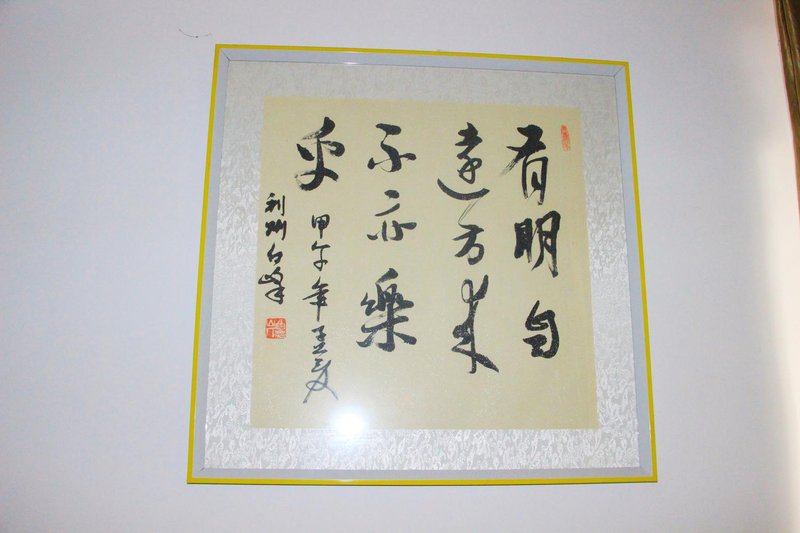 有朋自
遠方来
不亦樂
乎
甲午年孟夏
利州白峰